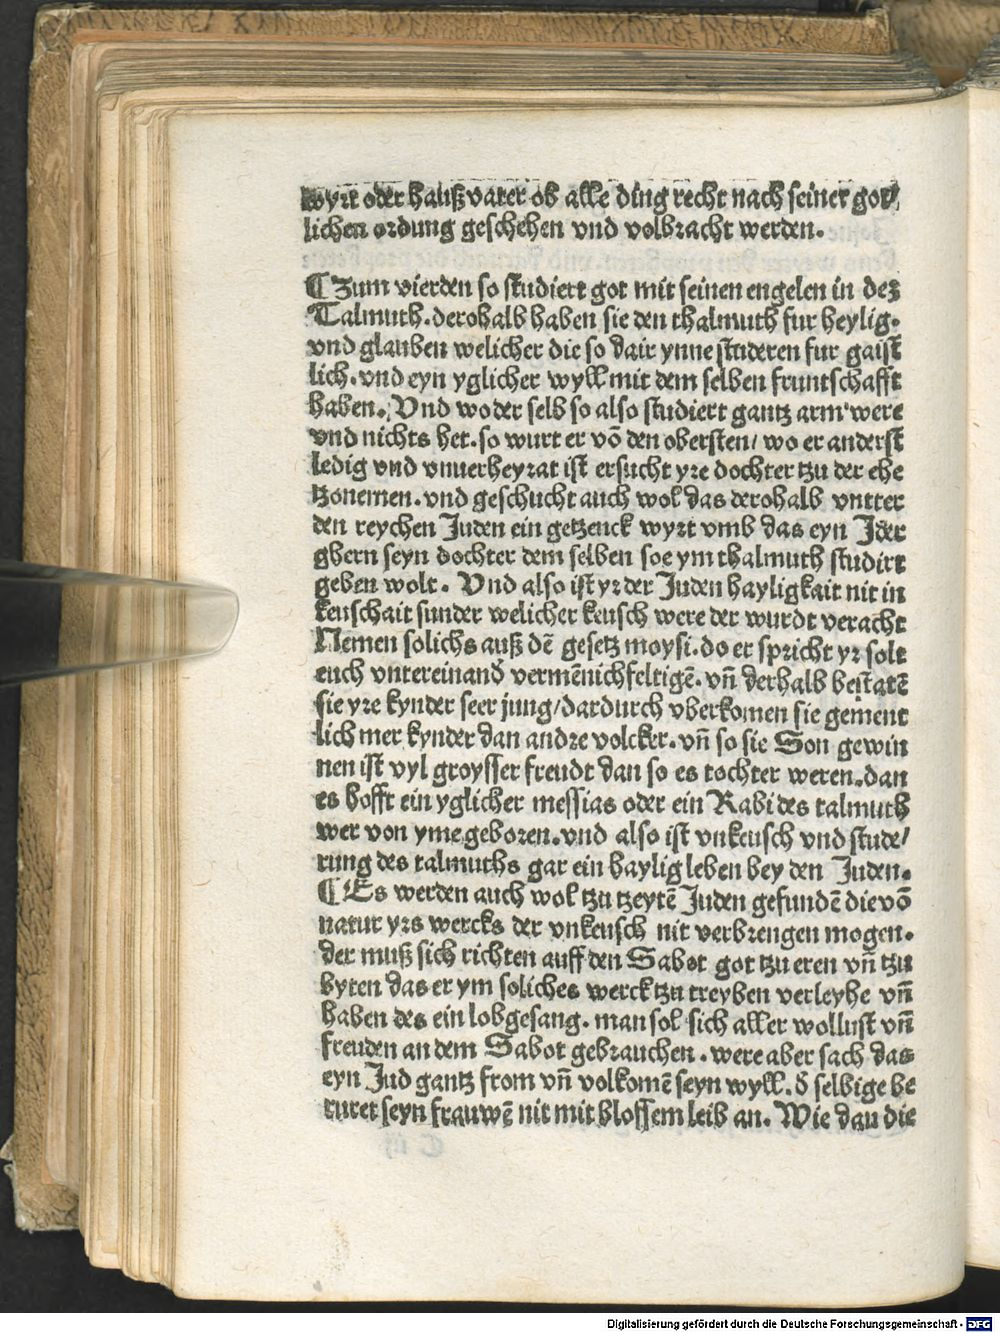 wyrt oder haußvater ob alle ding recht nach seiner got/
lichen ordung geschehen vnd volbracht werden.
¶ Zum vierden so studiert got mit seinen engelen in dez
Talmuth. derohalb haben sie den thalmuth fur heylig.
vnd glauben welicher die so dair ynne studeren fur gaist
lich. vnd eyn yglicher wyll mit dem selben fruntschafft
haben. Vnd wo der selb so also studiert gantz arm were
vnd nichts het. so wurt er võ den obersten/ wo er anderst
ledig vnd vnuerheyrat ist ersucht yre dochter tzu der ehe
tzonemen. vnd geschucht auch wol das derohalb vntter
den reychen Juden ein getzenck wyrt vmb das eyn Jder
ghern seyn dochter dem selben soe ym thalmuth studirt
geben wolt. Vnd also ist yr der Juden hayligkait nit in
keuschait sunder welicher keusch were der wurdt veracht
Nemen solichs auß dē gesetz moysi. do er spricht yr solt
euch vntereinand̕ vermēnichfeltigē. vn̄ derhalb bestatē
sie yre kynder seer jung/ dardurch vberkomen sie gement
lich mer kynder dan andre volcker. vn̄ so sie Son gewin
nen ist vyl groysser freudt dan so es tochter weren. dan
es hofft ein yglicher messias oder ein Rabi des talmuth
wer von yme geboren. vnd also ist vnkeusch vnd stude/
rung des talmuths gar ein haylig leben bey den Juden.
¶ Es werden auch wol tzu tzeytē Juden gefundē die võ
natur yrs wercks der vnkeusch nit verbrengen mogen.
der muß sich richten auff den Sabot got tzu eren vn̄ tzu
byten das er ym soliches werck tzu treyben verleyhe vn̄
haben des ein lobgesang. man sol sich aller wollust vn̄
freuden an dem Sabot gebrauchen. were aber sach das
eyn Jud gantz from vn̄ volkomē seyn wyll. d̕ selbige be
ruret seyn frauwē nit mit blossem leib an. Wie dan die
Digitalisierung gefördert durch die Deutsche Forschungsgemeinschaft - DFG